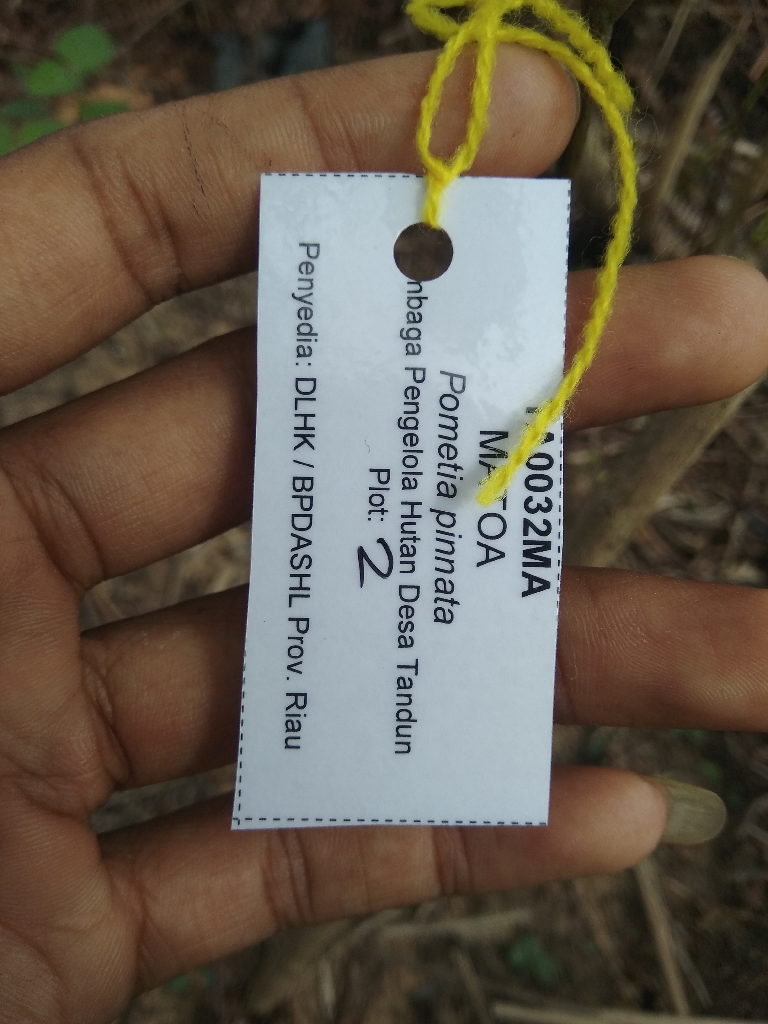 A0032MA
MATOA
Pometia pinnata
mbaga Pengelola Hutan Desa Tandun
Plot: 2
Penyedia: DLHK / BPDASHL Prov. Riau